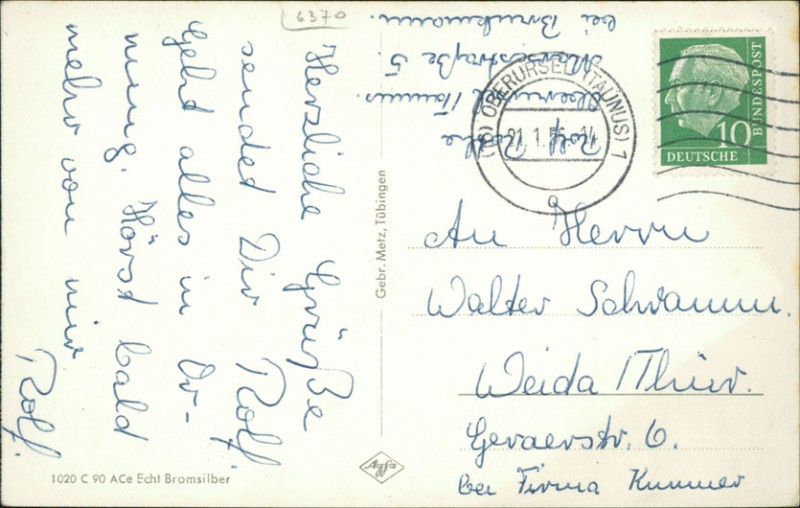 6370
Herzliche Grüße
sendet Dir Rolf
Geht alles in Or-
nung. Hörst bald
mehr von mir
Rolf.
Rolf
Taunus.
straße 5.
bei
(16) OBERURSEL (TAUNUS) 1
21.1.56.-14
a
10
DEUTSCHE
BUNDESPOST
An Herrn
Walter Schramm.
Weida / Thür.
Geraerstr. 6.
bei Firma Kummer
Gebr. Metz, Tübingen
1020 C 90 ACe Echt Bromsilber
Agfa